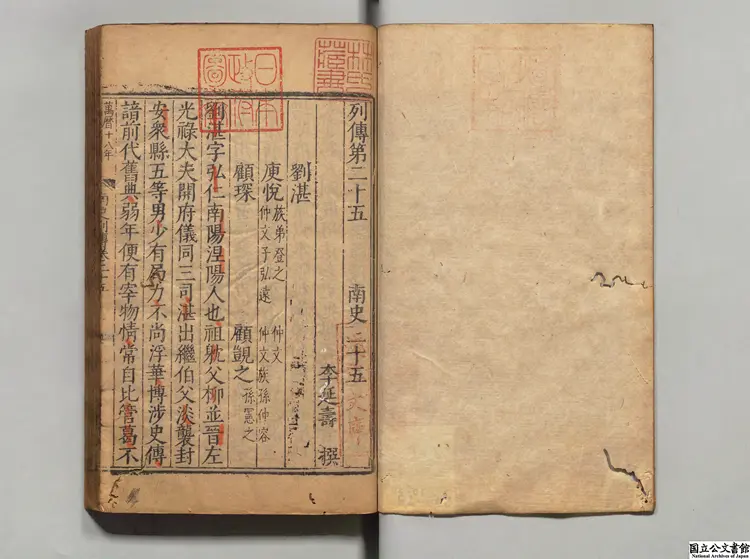 列傳第二十五 南史二十五
李延壽 撰
劉湛
庾悅 族弟登之 仲文
仲文子弘遠 仲文族孫仲容
顧琛 顧覬之 孫憲之
劉湛字弘仁南陽涅陽人也祖耽父柳並晉左
光祿大夫開府儀同三司湛出繼伯父淡襲封
安衆縣五等男少有局力不尚浮華博涉史傳
諳前代舊典弱年便有宰物情常自比管葛不
萬曆十八年
南史列傳卷二十五
日本
政府
圖書
林氏
藏書
文庫
国立公文書館
National Archives of Japan